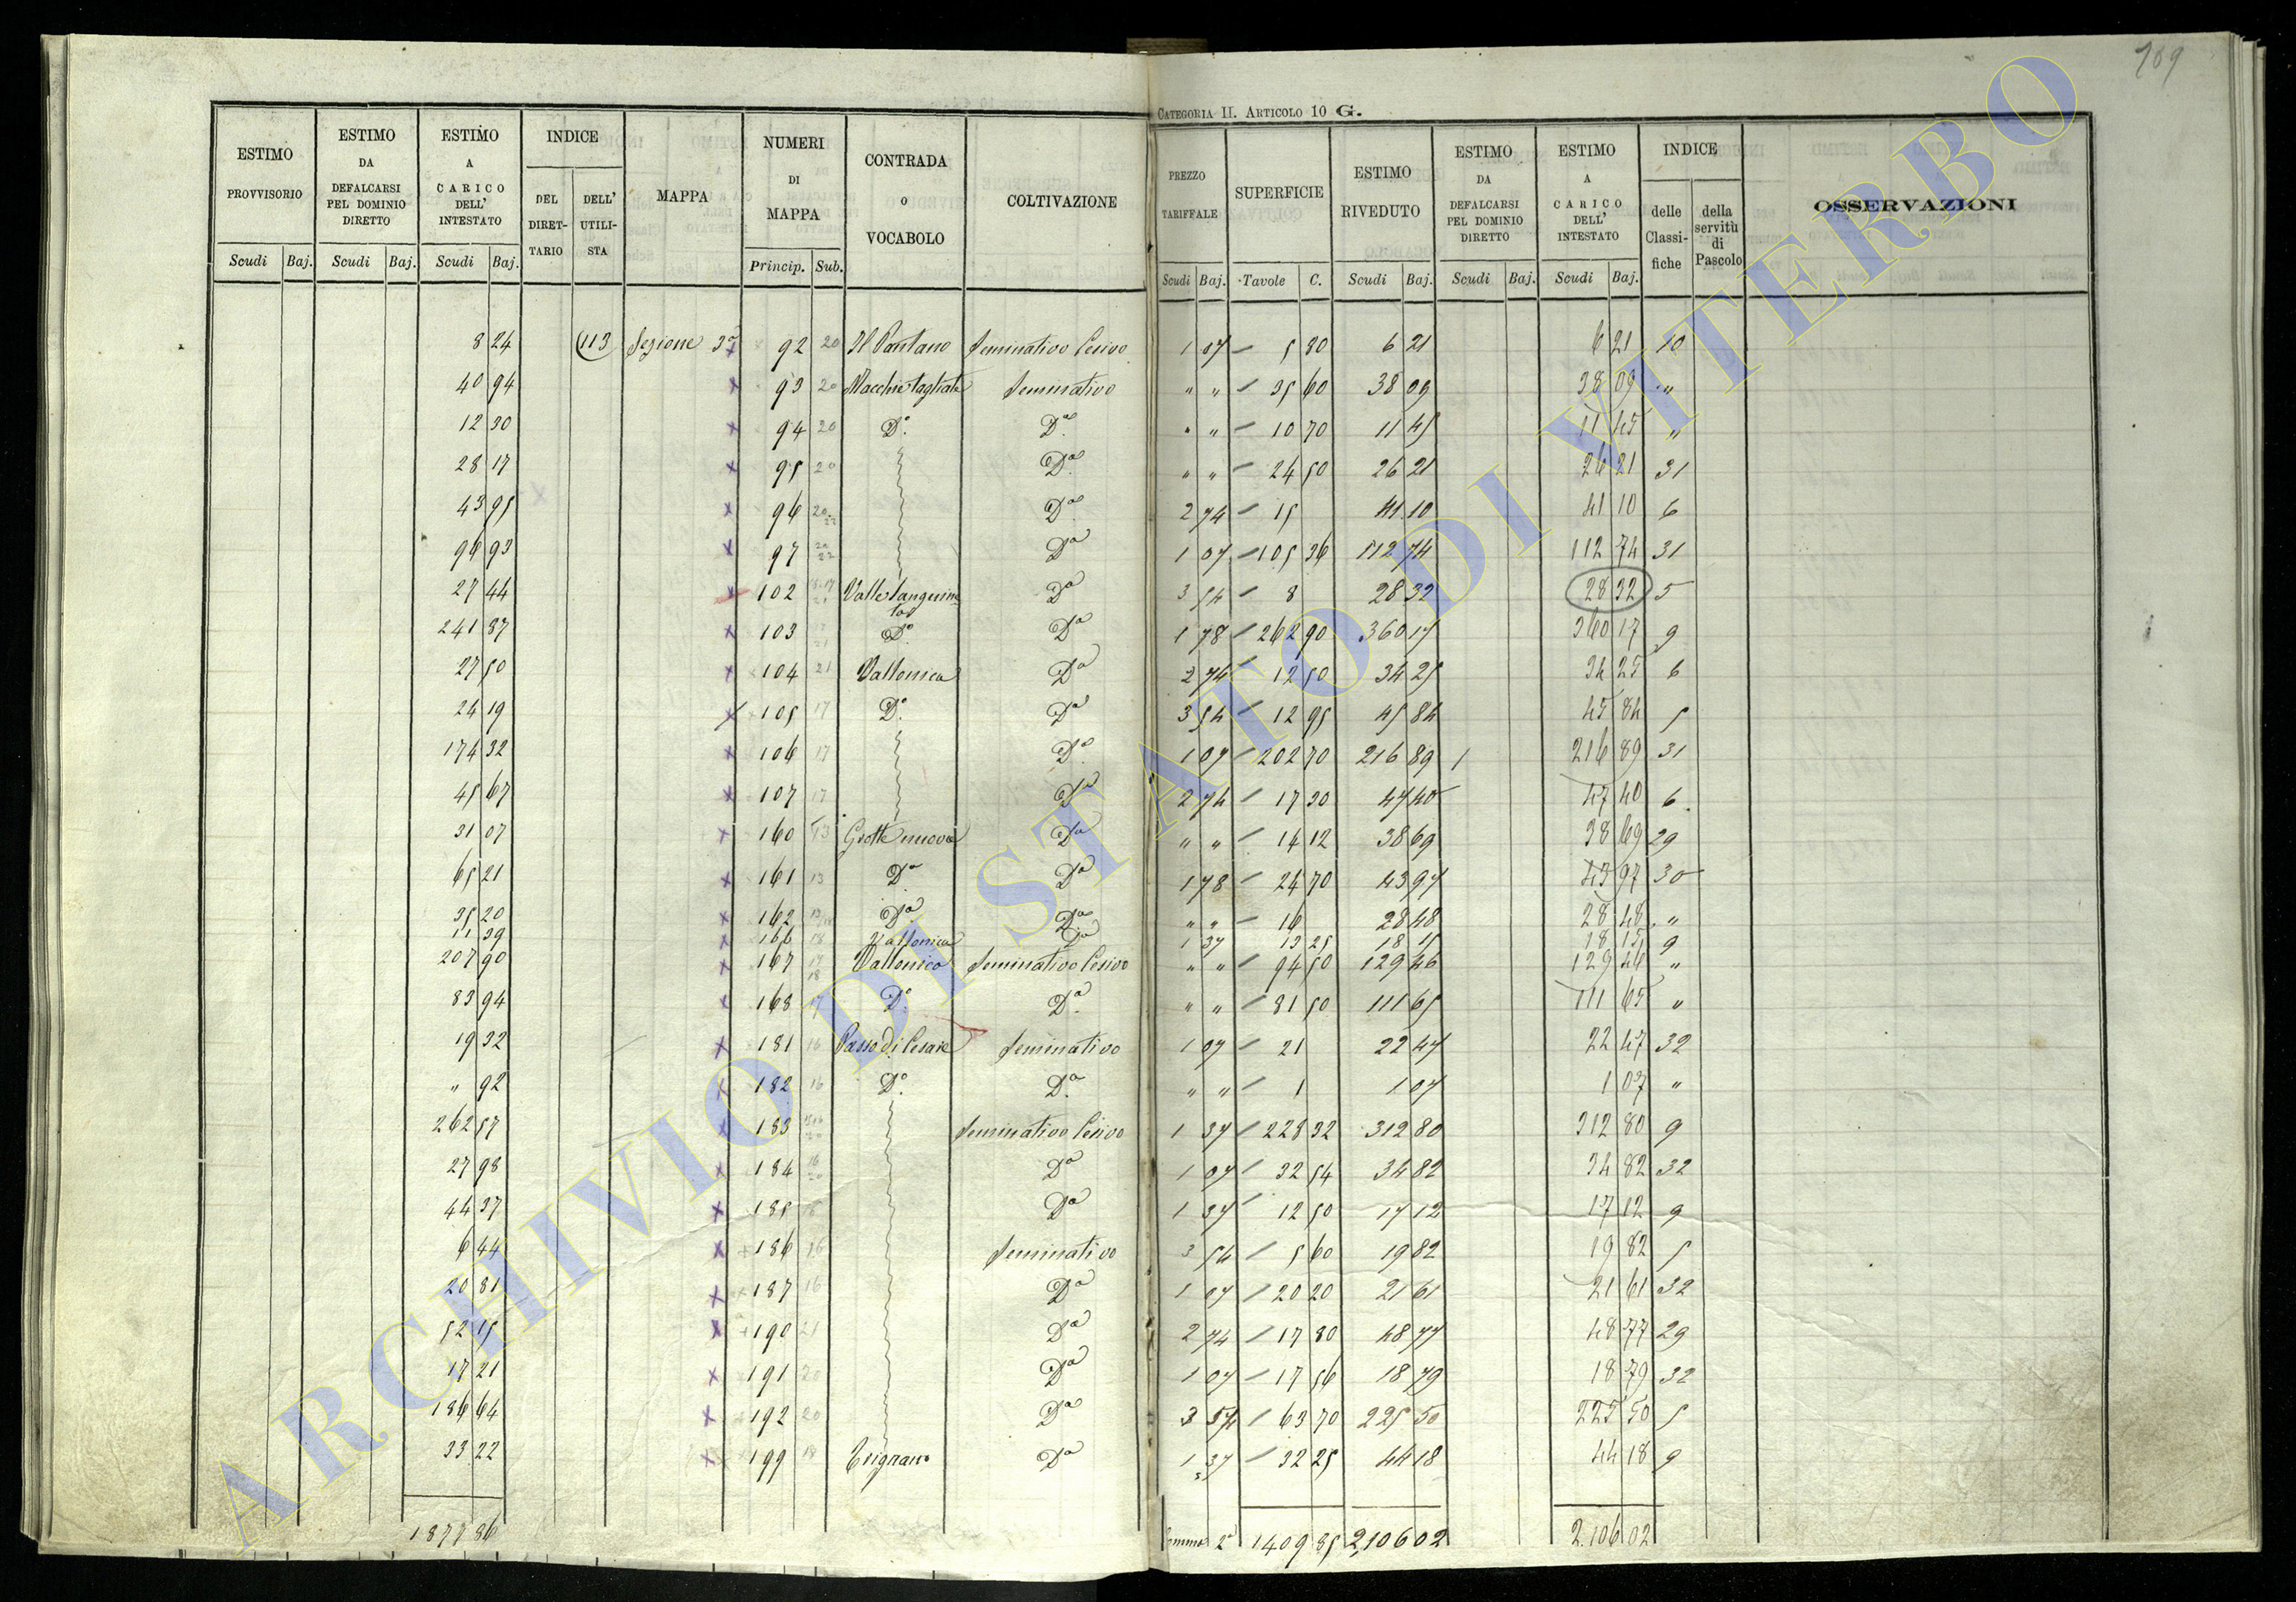 709
CATEGORIA II. ARTICOLO 10 G.
ESTIMO PROVVISORIO | ESTIMO DA DEFALCARSI PEL DOMINIO DIRETTO | ESTIMO A CARICO DELL' INTESTATO | INDICE | MAPPA | NUMERI DI MAPPA | CONTRADA O VOCABOLO | COLTIVAZIONE | PREZZO TARIFFALE | SUPERFICIE | ESTIMO RIVEDUTO | ESTIMO DA DEFALCARSI PEL DOMINIO DIRETTO | ESTIMO A CARICO DELL' INTESTATO | INDICE | OSSERVAZIONI
DEL DIRETTARIO | DELL' UTILISTA | delle Classifiche | della servitù di Pascolo
Scudi | Baj. | Scudi | Baj. | Scudi | Baj. | Princip. | Sub. | Scudi | Baj. | Tavole | C. | Scudi | Baj. | Scudi | Baj. | Scudi | Baj.
8 24 | 113 | Sezione 3a | 92 | 20 | Il Pantano | Seminativo Cesivo | 1 07 | 5 80 | 6 21 | 6 21 | 10
40 94 | 93 | 20 | Macchie tagliate | Seminativo | " " | 35 60 | 38 09 | 38 09 | "
12 30 | 94 | 20 | Do | Da | " " | 10 70 | 11 45 | 11 45 | "
28 17 | 95 | 20 | Da | " " | 24 50 | 26 21 | 26 21 | 31
43 95 | 96 | Da | 2 74 | 15 | 41 10 | 41 10 | 6
96 93 | 97 | Da | 1 07 | 105 36 | 112 74 | 112 74 | 31
27 44 | 102 | Da | 3 54 | 8 | 28 32 | 28 32 | 5
241 87 | 103 | Do | Da | 1 | 262 90 | 360 17 | 360 17 | 9
27 50 | 104 | 21 | Vallonica | Da | 2 74 | 12 50 | 34 25 | 34 25 | 6
24 19 | 105 | 17 | Do | Da | 3 54 | 12 95 | 45 84 | 45 84 | 5
174 32 | 106 | 17 | Da | 1 07 | 202 70 | 216 89 | 216 89 | 31
45 67 | 107 | 17 | Da | 2 74 | 17 30 | 47 40 | 47 40 | 6
31 07 | 160 | 13 | Grotte nuova | Da | " " | 14 12 | 38 69 | 38 69 | 29
65 21 | 161 | 13 | Da | Da | 1 78 | 24 70 | 43 97 | 43 97 | 30
35 20 | 162 | Da | Da | " " | 16 | 28 48 | 28 48 | "
11 39 | 166 | 18 | Vallonica | Da | 1 37 | 13 25 | 18 15 | 18 15 | 9
207 90 | 167 | 17 18 | Vallonica | Seminativo Cesivo | " " | 94 50 | 129 46 | 129 46 | "
83 94 | 168 | 17 | Do | Da | " " | 81 50 | 111 65 | 111 65 | "
19 32 | 181 | 16 | Passo Di Cesare | Seminativo | 1 07 | 21 | 22 47 | 22 47 | 32
" 92 | 182 | 16 | Do | Da | " " | 1 | 1 07 | 1 07 | "
262 57 | 183 | Seminativo Cesivo | 1 37 | 228 32 | 312 80 | 312 80 | 9
27 98 | 184 | 16 20 | Da | 1 07 | 32 54 | 34 82 | 34 82 | 32
44 37 | 185 | Da | 1 37 | 12 50 | 17 12 | 17 12 | 9
6 44 | 186 | 16 | Seminativo | 3 54 | 5 60 | 19 82 | 19 82 | 5
20 81 | 187 | 16 | Da | 1 07 | 20 20 | 21 61 | 21 61 | 32
52 15 | 190 | 21 | Da | 2 74 | 17 80 | 48 77 | 48 77 | 29
17 21 | 191 | 20 | Da | 1 07 | 17 56 | 18 79 | 18 79 | 32
186 64 | 192 | 20 | Da | 3 54 | 63 70 | 225 50 | 225 50 | 5
33 22 | 199 | 18 | Da | 1 37 | 32 25 | 44 18 | 44 18 | 9
1877 86 | Somma 2a | 1409 85 | 2,106 02 | 2.106 02
ARCHIVIO DI STATO DI VITERBO